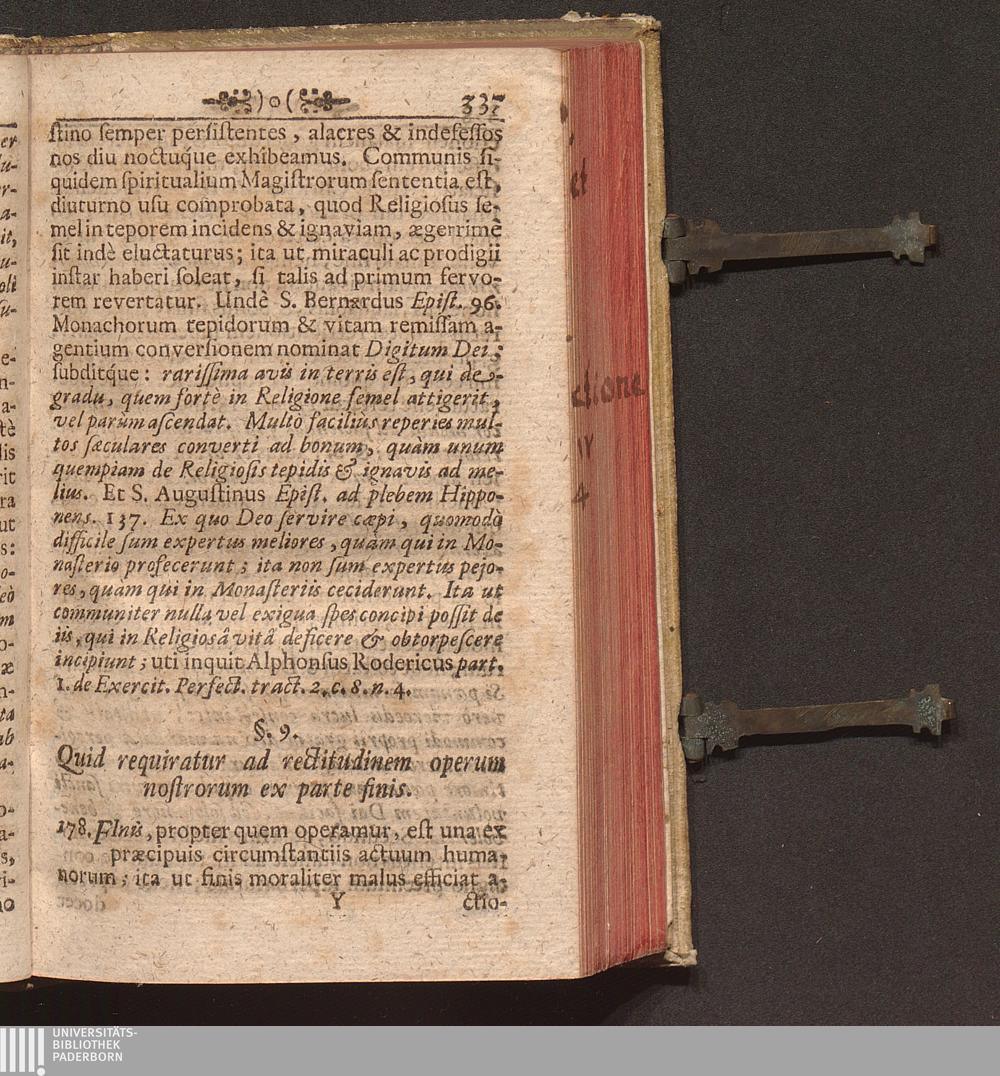 )o( 337
ſtino ſemper perſiſtentes, alacres & indefeſſos
nos diu noctuq́ue exhibeamus. Communis ſi-
quidem ſpiritualium Magiſtrorum ſententia eſt,
diuturno uſu comprobata, quod Religioſus ſe-
mel in teporem incidens & ignaviam, ægerrimè
ſit indè eluctaturus; ita ut miraculi ac prodigii
inſtar haberi ſoleat, ſi talis ad primum fervo-
rem revertatur. Undè S. Bernardus Epiſt. 96.
Monachorum tepidorum & vitam remiſſam a-
gentium converſionem nominat Digitum Dei;
ſubditq́ue: rariſſima avis in terris eſt, qui de-
gradu, quem fortè in Religione ſemel attigerit,
vel parùm aſcendat. Multò facilius reperies mul-
tos ſæculares converti ad bonum, quàm unum
quempiam de Religioſis tepidis & ignavis ad me-
lius. Et S. Auguſtinus Epiſt. ad plebem Hippo-
nens. 137. Ex quo Deo ſervire cæpi, quomodò
difficile ſum expertus meliores, quàm qui in Mo-
naſterio profecerunt; ita non ſum expertus pejo-
res, quam qui in Monaſteriis ceciderunt. Ita ut
communiter nulla vel exigua ſpes concipi poſſit de
iis, qui in Religiosâ vitâ deficere & obtorpeſcere
incipiunt; uti inquit Alphonſus Rodericus part.
1. de Exercit. Perfect. tract. 2. c. 8. n. 4.
§. 9.
Quid requiratur ad rectitudinem operum
noſtrorum ex parte finis.
178. FInis, propter quem operamur, eſt una ex
præcipuis circumſtantiis actuum huma-
norum; ita ut finis moraliter malus efficiat a-
Y ctio-
UNIVERSITÄTS-
BIBLIOTHEK
PADERBORN